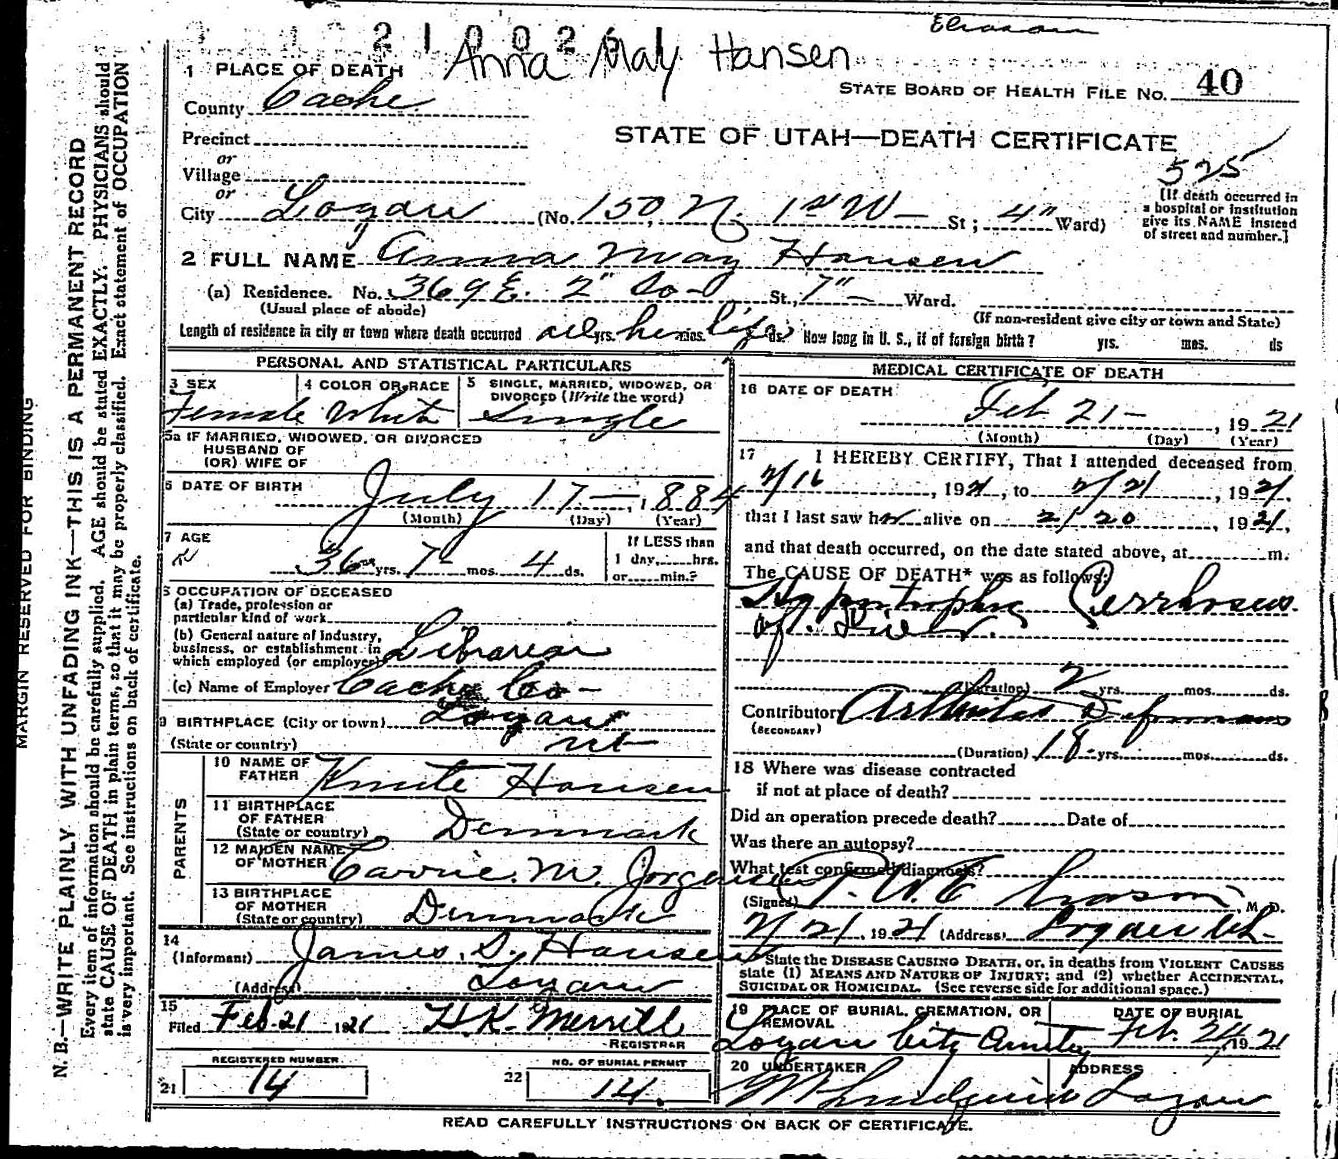 Anna May Hansen
1 PLACE OF DEATH
STATE BOARD OF HEALTH FILE NO. 40
County Cache
STATE OF UTAH—DEATH CERTIFICATE
Precinct
or
Village
or
525
[If death occurred in
a hospital or institution
give its NAME instead
of street and number.]
City Logan (No. 150 N. 1st W— St; 4" Ward)
2 FULL NAME Anna May Hansen
(a) Residence. No. 369 E. 2" So— St., 7"— Ward.
(Usual place of abode)
(If non-resident give city or town and State)
Length of residence in city or town where death occurred all yrs. her mos. life ds. How long in U. S., if of foreign birth? yrs. mos. ds
PERSONAL AND STATISTICAL PARTICULARS
3 SEX 4 COLOR OR RACE 5 SINGLE, MARRIED, WIDOWED, OR
DIVORCED (Write the word)
Female White Single
5a IF MARRIED, WIDOWED, OR DIVORCED
HUSBAND OF
(OR) WIFE OF
6 DATE OF BIRTH July 17—, 1884
(Month) (Day) (Year)
7 AGE
36 yrs. 7 mos. 4 ds.
If LESS than
1 day, hrs.
or min.?
8 OCCUPATION OF DECEASED
(a) Trade, profession or
particular kind of work
(b) General nature of industry,
business, or establishment in
which employed (or employer) Librarian
(c) Name of Employer Cache Co—
9 BIRTHPLACE (City or town) Logan
(State or country) Ut
PARENTS
10 NAME OF
FATHER Knute Hansen
11 BIRTHPLACE
OF FATHER
(State or country) Denmark
12 MAIDEN NAME
OF MOTHER Carrie M. Jorgensen
13 BIRTHPLACE
OF MOTHER
(State or country) Denmark
14
(Informant) James S. Hansen
(Address) Logan
15
Filed Feb 21 1921 H.K. Merrill
REGISTRAR
REGISTERED NUMBER
21 14
NO. OF BURIAL PERMIT
22 14.
MEDICAL CERTIFICATE OF DEATH
16 DATE OF DEATH
Feb 21—, 1921
(Month) (Day) (Year)
17 I HEREBY CERTIFY, That I attended deceased from
2/16, 1921, to 2/21, 1921,
that I last saw her alive on 2/20, 1921,
and that death occurred, on the date stated above, at m.
The CAUSE OF DEATH* was as follows:
Hypertrophic Cerrhosus
of Liver.
(Duration) 2 yrs. mos. ds.
Contributory Arthritis Deformans
(SECONDARY)
(Duration) 18 yrs. mos. ds.
18 Where was disease contracted
if not at place of death?
Did an operation precede death? Date of
Was there an autopsy?
What test confirmed diagnosis?
(Signed) M.D.
2/21, 1921 (Address) Logan Ut.
State the DISEASE CAUSING DEATH, or, in deaths from VIOLENT CAUSES
state (1) MEANS AND NATURE OF INJURY; and (2) whether ACCIDENTAL,
SUICIDAL OR HOMICIDAL. (See reverse side for additional space.)
19 PLACE OF BURIAL, CREMATION, OR
REMOVAL
Logan City
DATE OF BURIAL
Feb. 24, 1921
20 UNDERTAKER
ADDRESS
Logan
READ CAREFULLY INSTRUCTIONS ON BACK OF CERTIFICATE.
MARGIN RESERVED FOR BINDING
N. B.—WRITE PLAINLY WITH UNFADING INK—THIS IS A PERMANENT RECORD
Every item of information should be carefully supplied. AGE should be stated EXACTLY. PHYSICIANS should
state CAUSE OF DEATH in plain terms, so that it may be properly classified. Exact statement of OCCUPATION
is very important. See instructions on back of certificate.